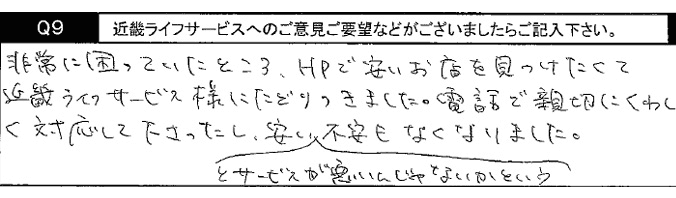 Q9 近畿ライフサービスへのご意見ご要望などがございましたらご記入下さい。
非常に困っていたところ、HPで安いお店を見つけたくて
近畿ライフサービス様にたどりつきました。電話で親切にくわし
く対応して下さったし、安い、不安もなくなりました。
とサービスが悪いんじゃないかという